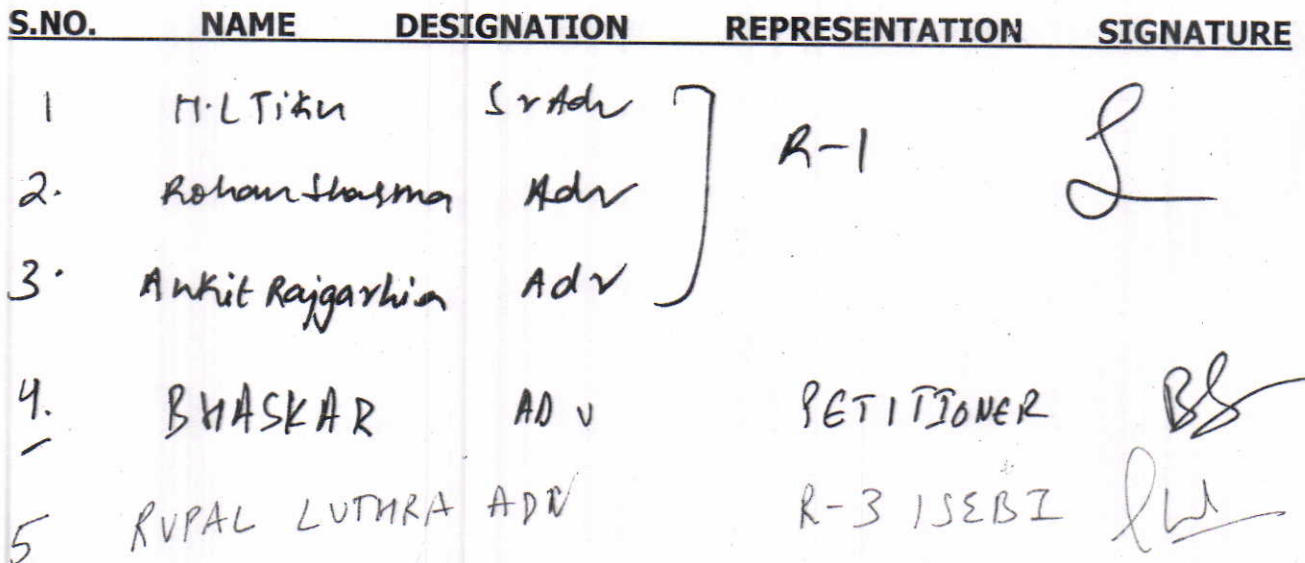 S.NO. NAME DESIGNATION REPRESENTATION SIGNATURE
1 H.L Tiku Sr Adv
R-1
2. Rohan Sharma Adv
3. Ankit Rajgarhia Adv
4. BHASKAR ADV PETITIONER
5 RUPAL LUTHRA ADV R-3 / SEBI